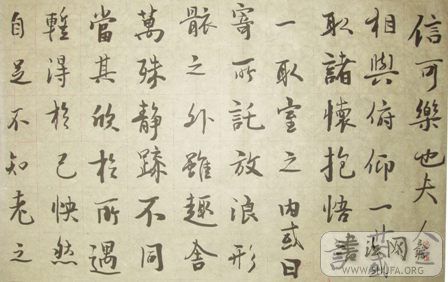 信可樂也夫人
相與俯仰一世或
取諸懷抱悟
一取室之内或因
寄所託放浪形
骸之外雖趣舍
萬殊静躁不同
當其欣於所遇
暫得於己怏然
自足不知老之
书法网
WWW.SHUFA.ORG